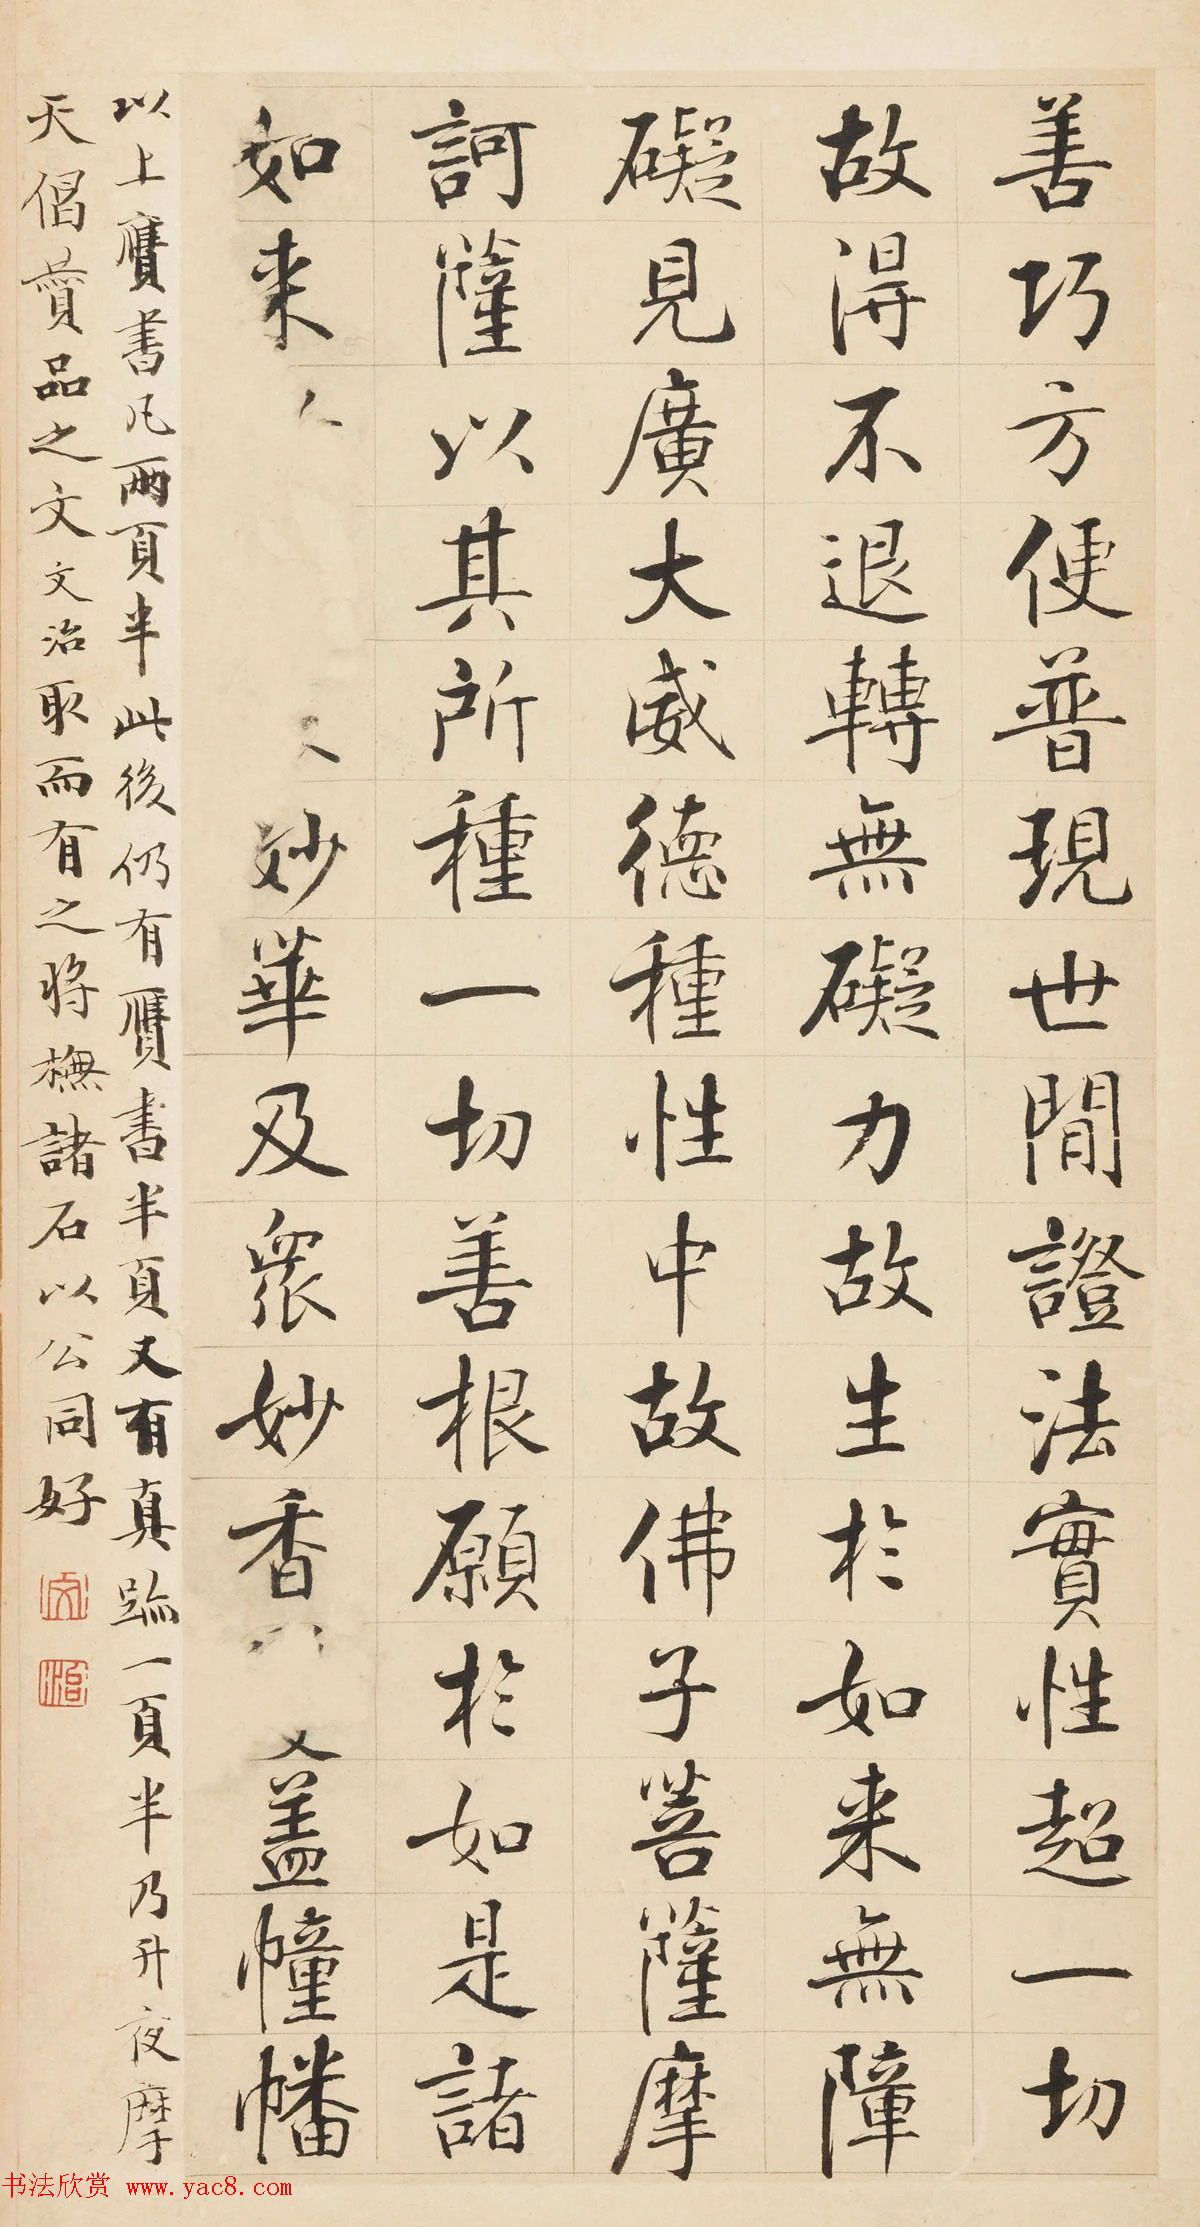 善巧方便普現世間證法實性超一切
故得不退轉無礙力故生於如来無障
礙見廣大威德種性中故佛子菩薩摩
訶薩以其所種一切善根願於如是諸
如来妙華及眾妙香盖幢幡
以上贗書凡兩頁半此後仍有贗書半頁又有真跡一頁半乃升夜摩
天偈賛品之文文治取而有之將橅諸石以公同好
文
治
书法欣赏 www.yac8.com